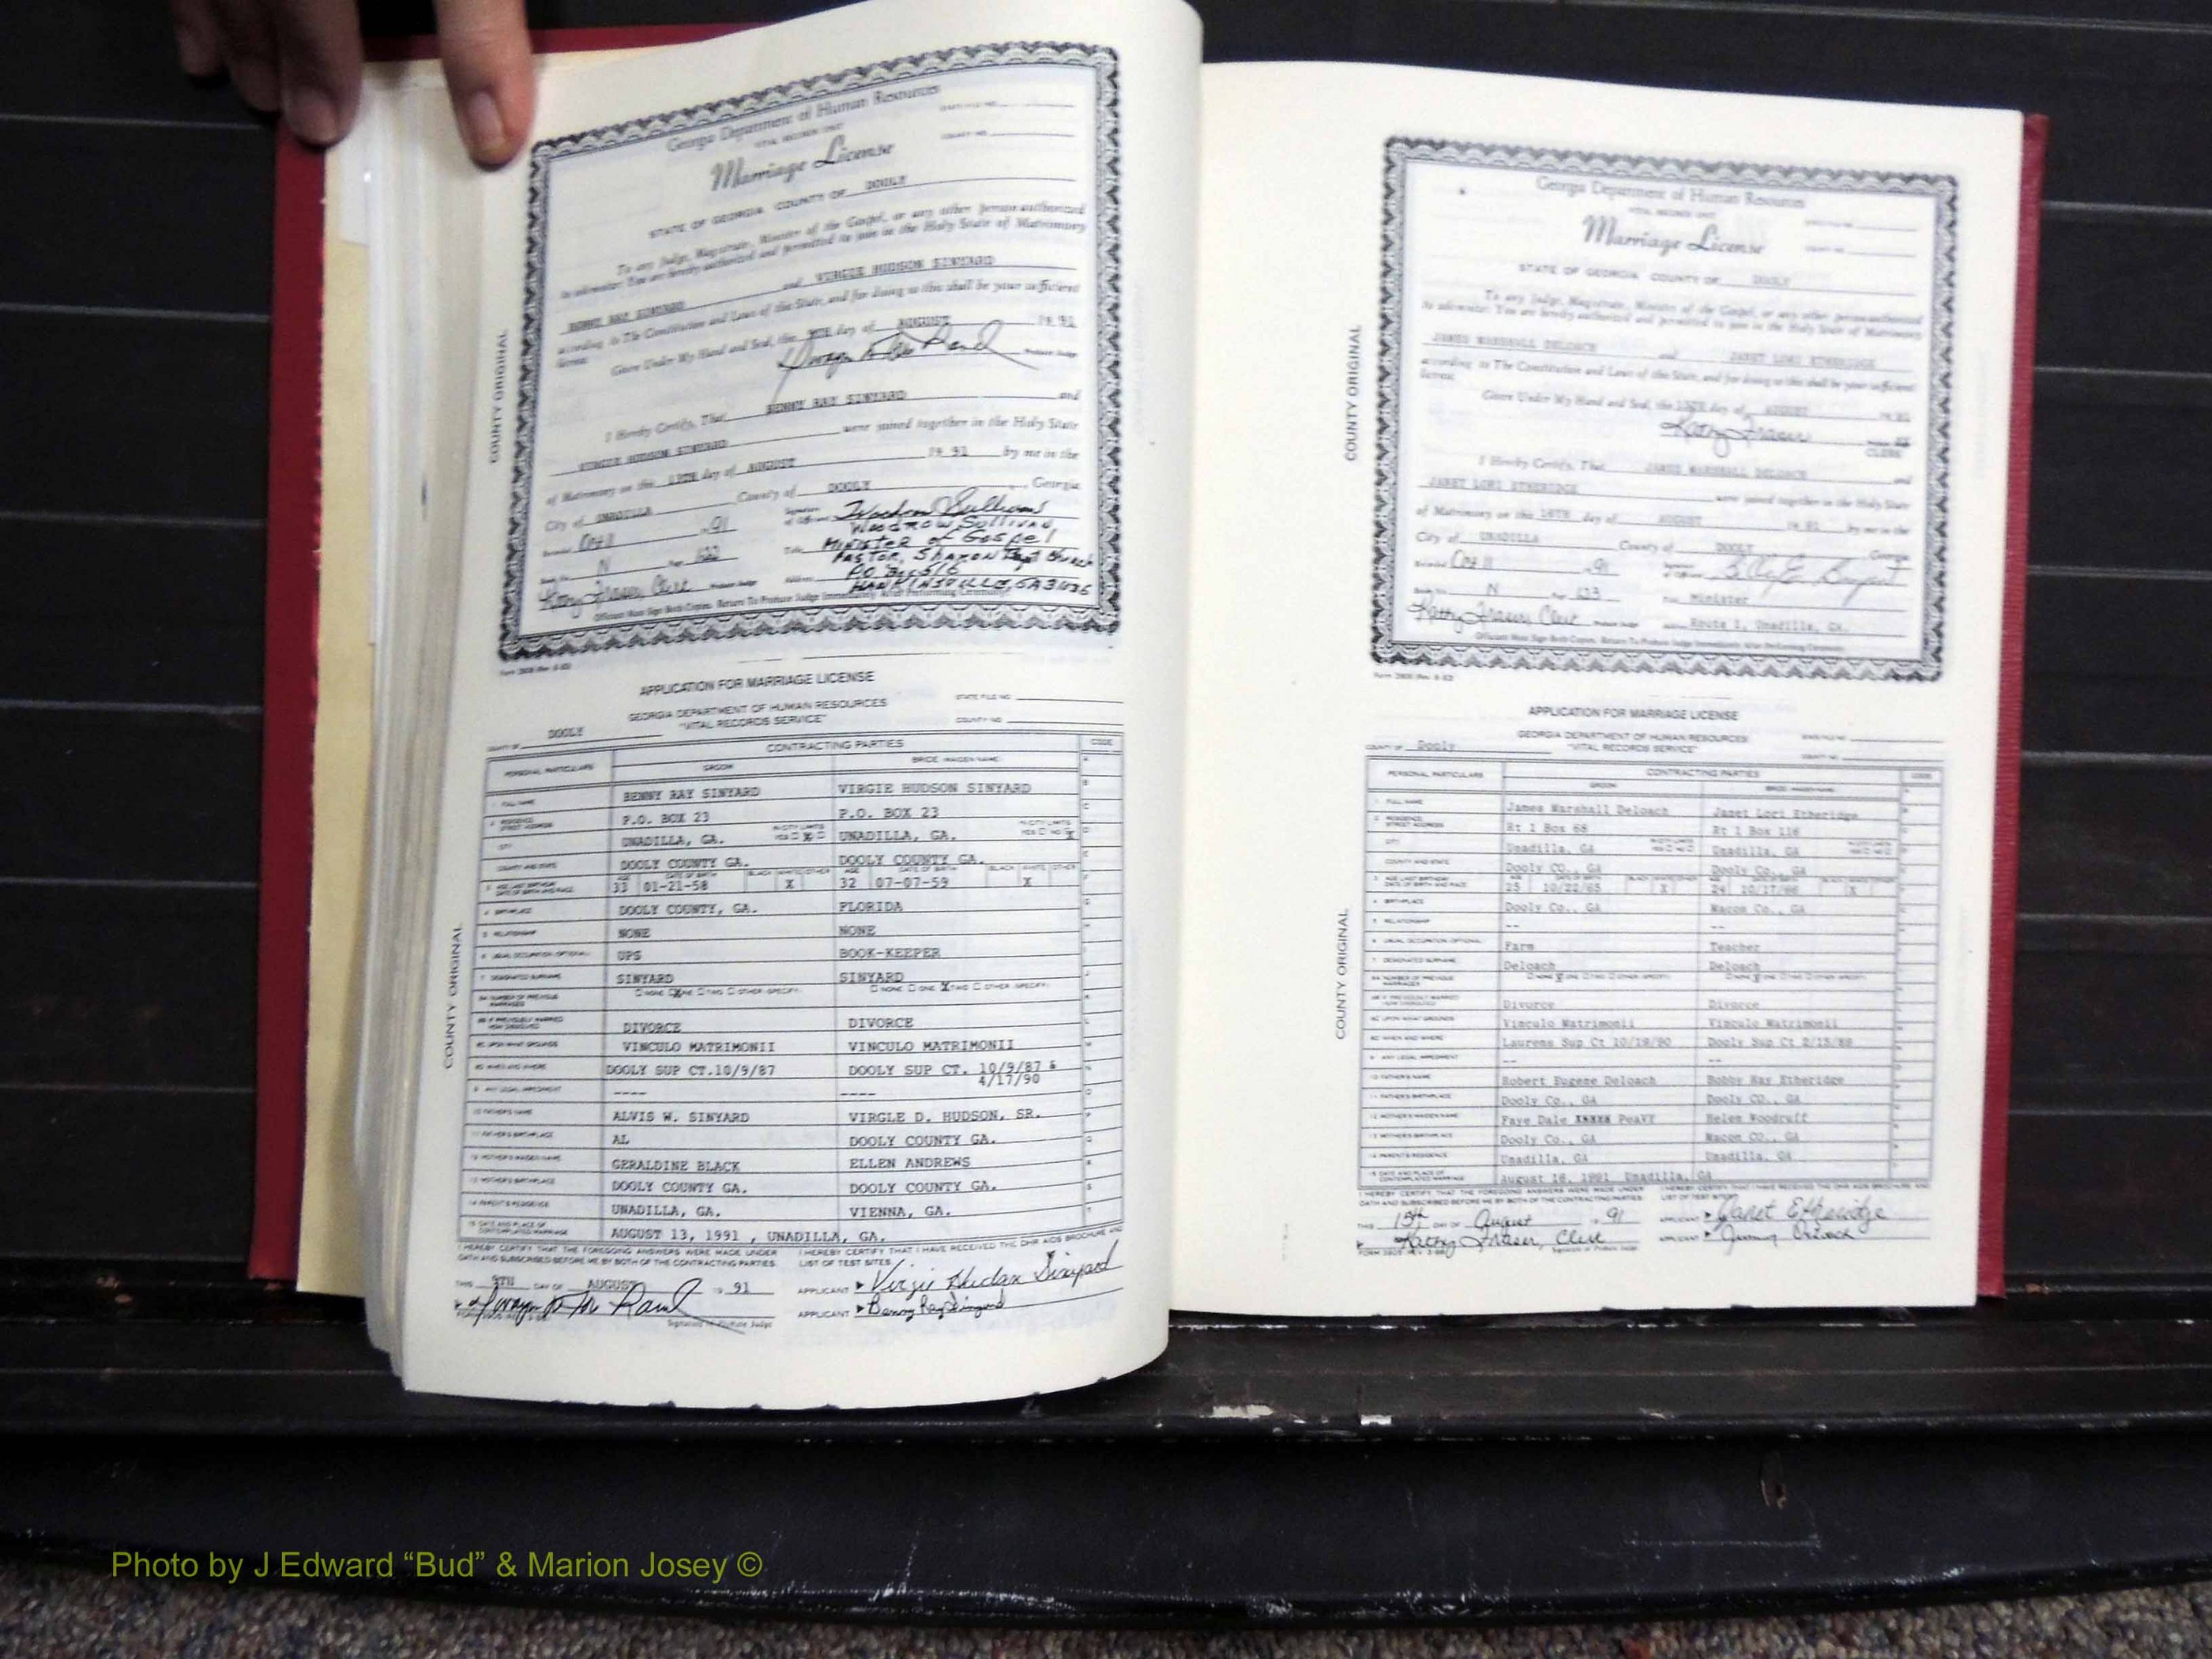 Georgia Department of Human Resources
VITAL RECORDS UNIT
Marriage License
STATE OF GEORGIA COUNTY OF DOOLY
To any Judge, Magistrate, Minister of the Gospel, or any other person authorized
to solemnize: You are hereby authorized and permitted to join in the Holy State of Matrimony
BENNY RAY SINYARD and VIRGIE HUDSON SINYARD
according to The Constitution and Laws of this State, and for doing so this shall be your sufficient
license.
Given Under My Hand and Seal, this 9TH day of AUGUST 19 91
Probate Judge
I Hereby Certify, That BENNY RAY SINYARD and
VIRGIE HUDSON SINYARD were joined together in the Holy State
of Matrimony on this 13TH day of AUGUST 19 91 by me in the
City of UNADILLA County of DOOLY, Georgia
Recorded Oct 11 , 91
Woodrow Sullivan
WOODROW SULLIVAN,
Title MINISTER OF GOSPEL
PASTOR, SHARON Bapt Church
Book No. N Page 122
Address PO Box 516
HAWKINSVILLE, GA 31036
Kathy Fraser, Clerk Probate Judge
Officiant Must Sign Both Copies. Return To Probate Judge Immediately After Performing Ceremony.
COUNTY ORIGINAL
APPLICATION FOR MARRIAGE LICENSE
GEORGIA DEPARTMENT OF HUMAN RESOURCES
"VITAL RECORDS SERVICE"
STATE FILE NO.
COUNTY NO.
COUNTY OF DOOLY
PERSONAL PARTICULARS
CONTRACTING PARTIES
CODE
GROOM
BRIDE (MAIDEN NAME)
1 FULL NAME BENNY RAY SINYARD VIRGIE HUDSON SINYARD
2 RESIDENCE STREET ADDRESS P.O. BOX 23 P.O. BOX 23
CITY UNADILLA, GA. IN CITY LIMITS YES NO UNADILLA, GA. IN CITY LIMITS YES NO
COUNTY AND STATE DOOLY COUNTY GA. DOOLY COUNTY GA.
3 AGE LAST BIRTHDAY DATE OF BIRTH AND RACE 33 01-21-58 X 32 07-07-59 X
4 BIRTHPLACE DOOLY COUNTY, GA. FLORIDA
5 RELATIONSHIP NONE NONE
6 USUAL OCCUPATION (OPTIONAL) UPS BOOK-KEEPER
7 DESIGNATED SURNAME SINYARD SINYARD
8A NUMBER OF PREVIOUS MARRIAGES NONE ONE TWO OTHER (SPECIFY) NONE ONE TWO OTHER (SPECIFY)
8B IF PREVIOUSLY MARRIED HOW DISSOLVED DIVORCE DIVORCE
8C UPON WHAT GROUNDS VINCULO MATRIMONII VINCULO MATRIMONII
8D WHEN AND WHERE DOOLY SUP CT.10/9/87 DOOLY SUP CT. 10/9/87 &
4/17/90
9 ANY LEGAL IMPEDIMENT ---- ----
10 FATHER'S NAME ALVIS W. SINYARD VIRGLE D. HUDSON, SR.
11 FATHER'S BIRTHPLACE AL DOOLY COUNTY GA.
12 MOTHER'S MAIDEN NAME GERALDINE BLACK ELLEN ANDREWS
13 MOTHER'S BIRTHPLACE DOOLY COUNTY GA. DOOLY COUNTY GA.
14 PARENT'S RESIDENCE UNADILLA, GA. VIENNA, GA.
15 DATE AND PLACE OF CONTEMPLATED MARRIAGE AUGUST 13, 1991 , UNADILLA, GA.
I HEREBY CERTIFY THAT THE FOREGOING ANSWERS WERE MADE UNDER
OATH AND SUBSCRIBED BEFORE ME BY BOTH OF THE CONTRACTING PARTIES.
I HEREBY CERTIFY THAT I HAVE RECEIVED THE DHR AIDS BROCHURE AND
LIST OF TEST SITES.
THIS 9TH DAY OF AUGUST 19 91
APPLICANT Virgie Hudson Sinyard
APPLICANT Benny Ray Sinyard
Signature of Probate Judge
COUNTY ORIGINAL
Georgia Department of Human Resources
VITAL RECORDS UNIT
Marriage License
STATE OF GEORGIA COUNTY OF DOOLY
To any Judge, Magistrate, Minister of the Gospel, or any other person authorized
to solemnize: You are hereby authorized and permitted to join in the Holy State of Matrimony
JAMES MARSHALL DELOACH and JANET LORI ETHERIDGE
according to The Constitution and Laws of this State, and for doing so this shall be your sufficient
license.
Given Under My Hand and Seal, this 15TH day of AUGUST 19 91
Kathy Fraser
CLERK
I Hereby Certify, That JAMES MARSHALL DELOACH and
JANET LORI ETHERIDGE were joined together in the Holy State
of Matrimony on this 16TH day of AUGUST 19 91 by me in the
City of UNADILLA County of DOOLY Georgia
Recorded Oct 11 , 91
Book No. N Page 123
Title Minister
Kathy Fraser, Clerk Probate Judge
Address Route 1, Unadilla, GA.
Officiant Must Sign Both Copies. Return To Probate Judge Immediately After Performing Ceremony.
COUNTY ORIGINAL
APPLICATION FOR MARRIAGE LICENSE
GEORGIA DEPARTMENT OF HUMAN RESOURCES
"VITAL RECORDS SERVICE"
COUNTY OF Dooly
PERSONAL PARTICULARS
CONTRACTING PARTIES
CODE
GROOM
BRIDE (MAIDEN NAME)
1 FULL NAME James Marshall Deloach Janet Lori Etheridge
2 RESIDENCE STREET ADDRESS Rt 1 Box 68 Rt 1 Box 116
CITY Unadilla, GA Unadilla, GA
COUNTY AND STATE Dooly CO., GA Dooly Co., GA
3 AGE LAST BIRTHDAY DATE OF BIRTH AND RACE 25 10/22/65 X 24 10/17/66 X
4 BIRTHPLACE Dooly Co., GA Macon Co., GA
5 RELATIONSHIP -- --
6 USUAL OCCUPATION (OPTIONAL) Farm Teacher
7 DESIGNATED SURNAME Deloach Deloach
8A NUMBER OF PREVIOUS MARRIAGES NONE ONE TWO OTHER (SPECIFY) NONE ONE TWO OTHER (SPECIFY)
8B IF PREVIOUSLY MARRIED HOW DISSOLVED Divorce Divorce
8C UPON WHAT GROUNDS Vinculo Matrimonii Vinculo Matrimonii
8D WHEN AND WHERE Laurens Sup Ct 10/19/90 Dooly Sup Ct 2/15/89
9 ANY LEGAL IMPEDIMENT -- --
10 FATHER'S NAME Robert Eugene Deloach Bobby Ray Etheridge
11 FATHER'S BIRTHPLACE Dooly Co., GA Dooly CO., GA
12 MOTHER'S MAIDEN NAME Faye Dale XXXXX PeaVY Helen Woodruff
13 MOTHER'S BIRTHPLACE Dooly Co., GA Macon CO., GA
14 PARENT'S RESIDENCE Unadilla, GA Unadilla, GA
15 DATE AND PLACE OF CONTEMPLATED MARRIAGE August 16, 1991 Unadilla, GA
I HEREBY CERTIFY THAT THE FOREGOING ANSWERS WERE MADE UNDER
OATH AND SUBSCRIBED BEFORE ME BY BOTH OF THE CONTRACTING PARTIES.
I HEREBY CERTIFY THAT I HAVE RECEIVED THE DHR AIDS BROCHURE AND
LIST OF TEST SITES.
THIS 15th DAY OF August , 91
APPLICANT Janet Etheridge
Kathy Fraser, Clerk
APPLICANT
Signature of Probate Judge
COUNTY ORIGINAL
Photo by J Edward “Bud” & Marion Josey ©